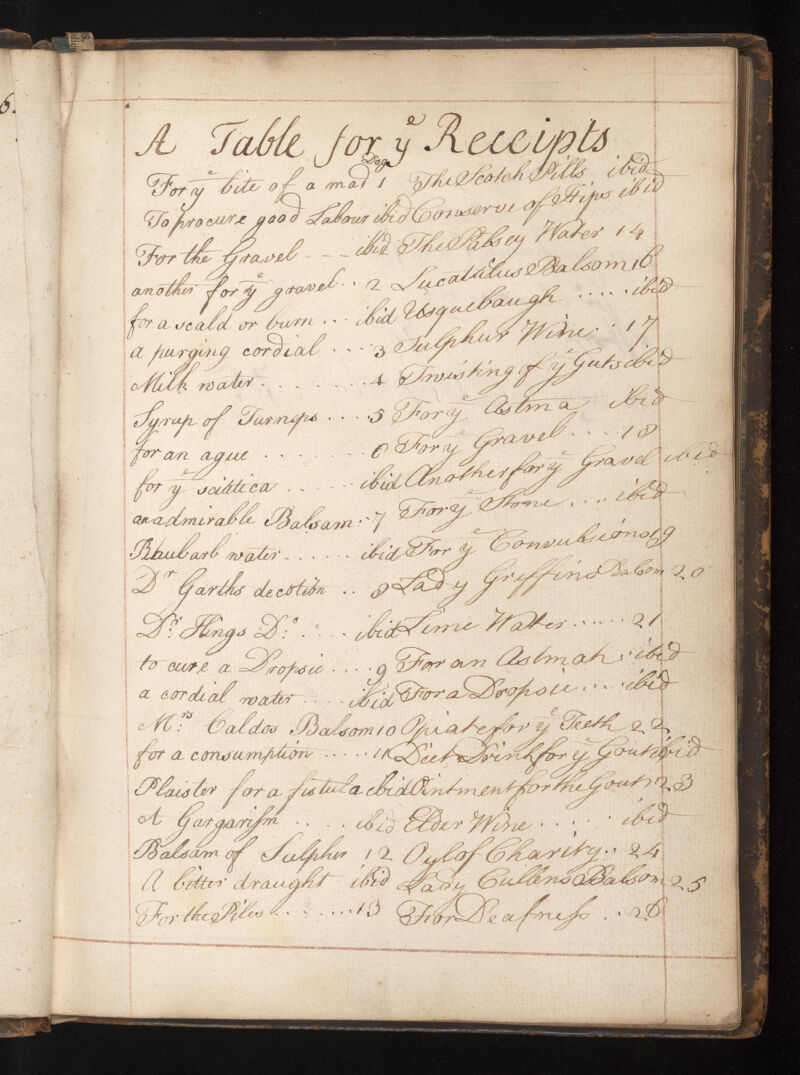 6.
A Table for yᵉ Receipts
For yᵉ bite of a mad Dog 1
To procure good Labour ibid
For the Gravel - - - ibid
another for yᵉ gravel . . 2
for a scald or burn . . . ibid
a purging cordial . . . . 3
Milk water . . . . . . . . 4
Syrup of Turneps . . . . 5
for an ague . . . . . . . 6
for yᵉ sciatica . . . . . ibid
an admirable Balsam . . 7
Rhubarb water . . . . . . ibid
Dʳ Garths decotion . . 8
Dʳ: Kings Dº: . . . . ibid
to cure a Dropsie . . . . 9
a cordial water . . . . ibid
Mʳˢ: Caldos Balsom 10
for a consumption . . . . . 11
Plaister for a fistula ibid
A Gargarism . . . . ibid
Balsam of Sulpher 12
A bitter draught ibid
For the Piles . . . . . . . 13
The Scotch Pills ibid
Conserve of Hips ibid
The Palsey Water 14
Lucatallus Balsom 16
Usquebaugh . . . . . ibid
Sulphur Wine . . 17
Twisting of yᵉ Guts ibid
For yᵉ Astma ibid
For yᵉ Gravel . . . . 18
Another for yᵉ Gravel ibid
For yᵉ Stone . . . . ibid
For yᵉ Convulsions 19
Lady Griffins Balsom 20
Lime Watter . . . . . . 21
For an Astmah . ibid
For a Dropsie . . . . ibid
Opiate for yᵉ Teeth 22
Diet Drink for yᵉ Gout ibid
Ointment for the Gout 23
Elder Wine . . . . . . ibid
Oyl of Charity . . 24
Lady Cullens Balsom 25
For Deafness . . 26